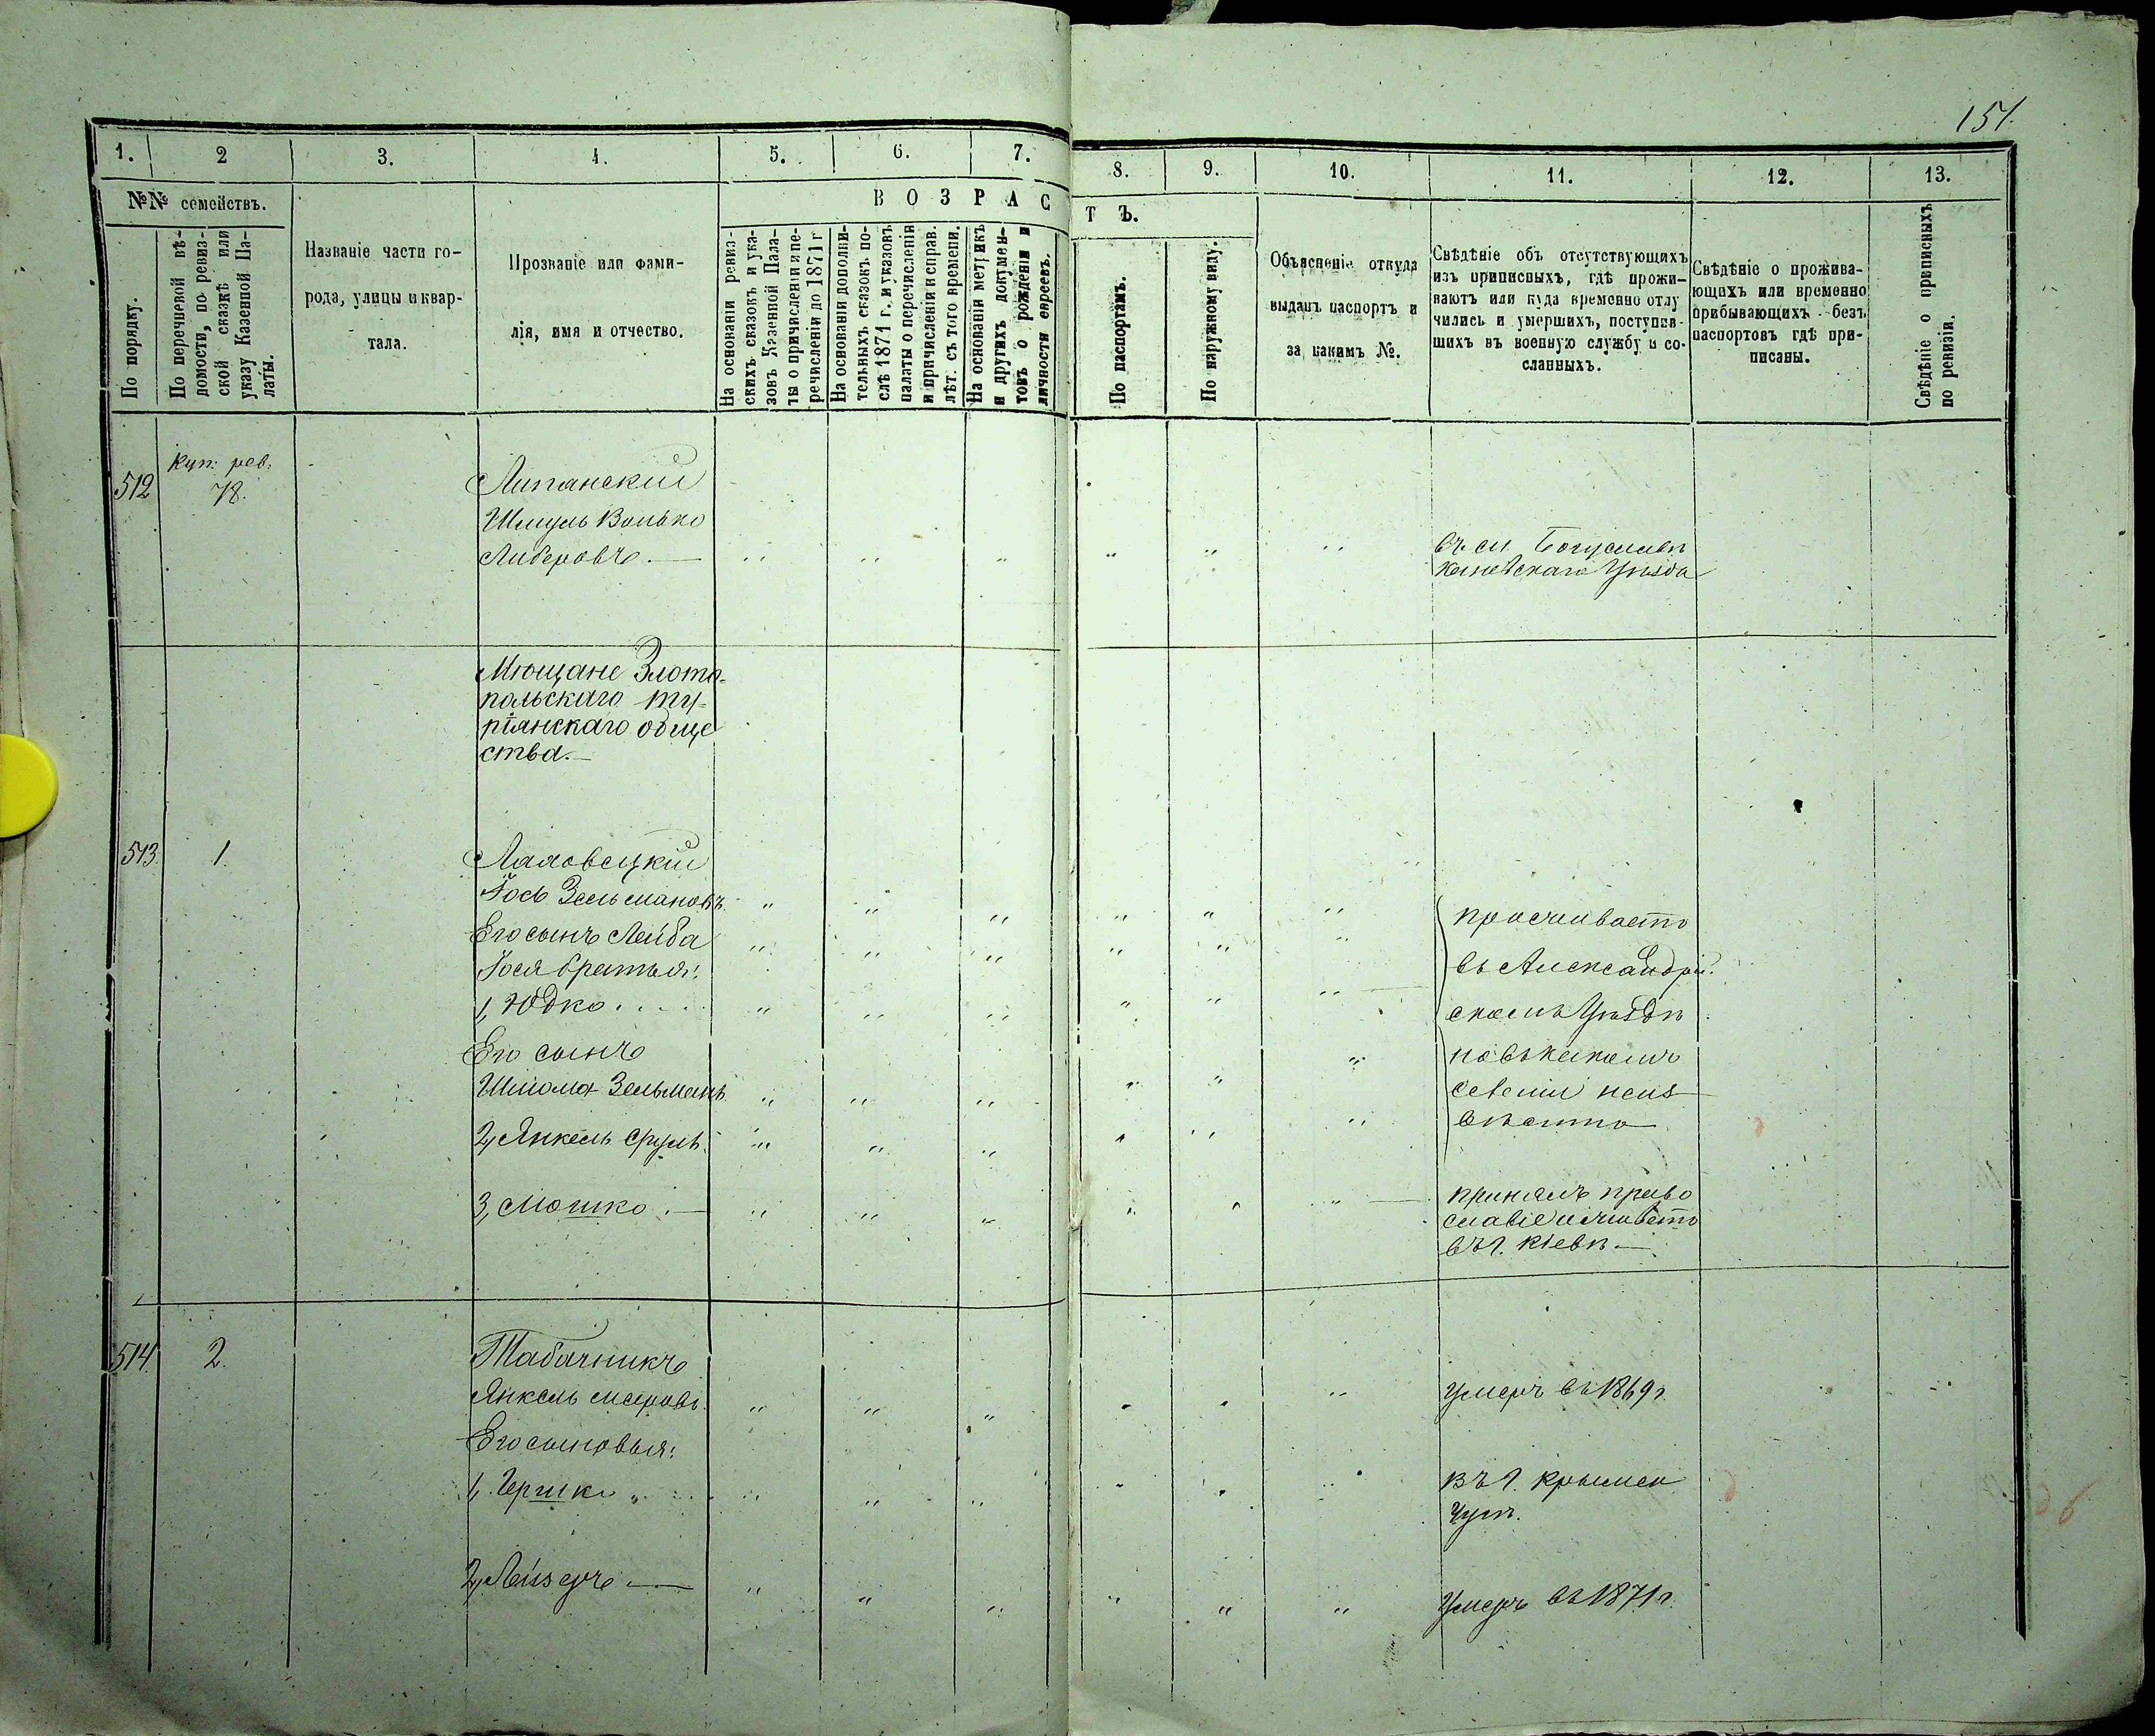 151.
1. 2 3. 4. 5. 6. 7. 8. 9. 10. 11. 12. 13.
№№ семействъ.
По порядку.
По перечневой вѣ-
домости, по ревиз-
ской сказкѣ или
указу Казенной Па-
латы.
Названіе части го-
рода, улицы и квар-
тала.
Прозваніе или фами-
лія, имя и отчество.
ВОЗРАСТЪ.
На основаніи ревиз-
скихъ сказокъ и ука-
зовъ Казенной Пала-
ты о причисленіи и пе-
речисленіи до 1871 г
На основаніи дополни-
тельныхъ сказокъ по-
слѣ 1871 г. и указовъ
палаты о перечисленіи
и причисленіи и справ.
лѣт. съ того времени.
На основаніи метрикъ
и другихъ докумен-
товъ о рожденіи и
личности евреевъ.
По паспортамъ.
По наружному виду.
Объясненіе откуда
выданъ паспортъ и
за какимъ №.
Свѣдѣніе объ отсутствующихъ
изъ приписныхъ, гдѣ прожи-
ваютъ или куда временно отлу
чились и умершихъ, поступив-
шихъ въ военную службу и со-
сланныхъ.
Свѣдѣніе о прожива-
ющихъ или временно
прибывающихъ безъ
паспортовъ гдѣ при-
писаны.
Свѣдѣніе о приписныхъ
по ревизіи.
Куп: рев.
512 78. Липанскій
Шмуль Волько
Либеровъ.— въ м. Богуславѣ
Каневскаго Уѣзда
Мѣщане Злото-
польскаго ту-
ріянскаго обще
ства.—
513. 1. Лаловецкій
Іось Зельмановъ
Его сынъ Лейба
Іося братья:
1, Юдко
Его сынъ
Шлома Зельманъ
2, Янкель Сруль.
проживаетъ
въ Александрій-
скомъ Уѣздѣ
но въ какомъ
селеніи неиз
вѣстно
3, Мошко.— принялъ право
славіе и живетъ
въ г. Кіевѣ—
514 2. Табачникъ
Янкель Мееровъ. Умеръ въ 1869 г.
Его сыновья:
1, Гершко Въ г. Крымен
Чугѣ.
2, Лейзеръ — Умеръ въ 1871 г.